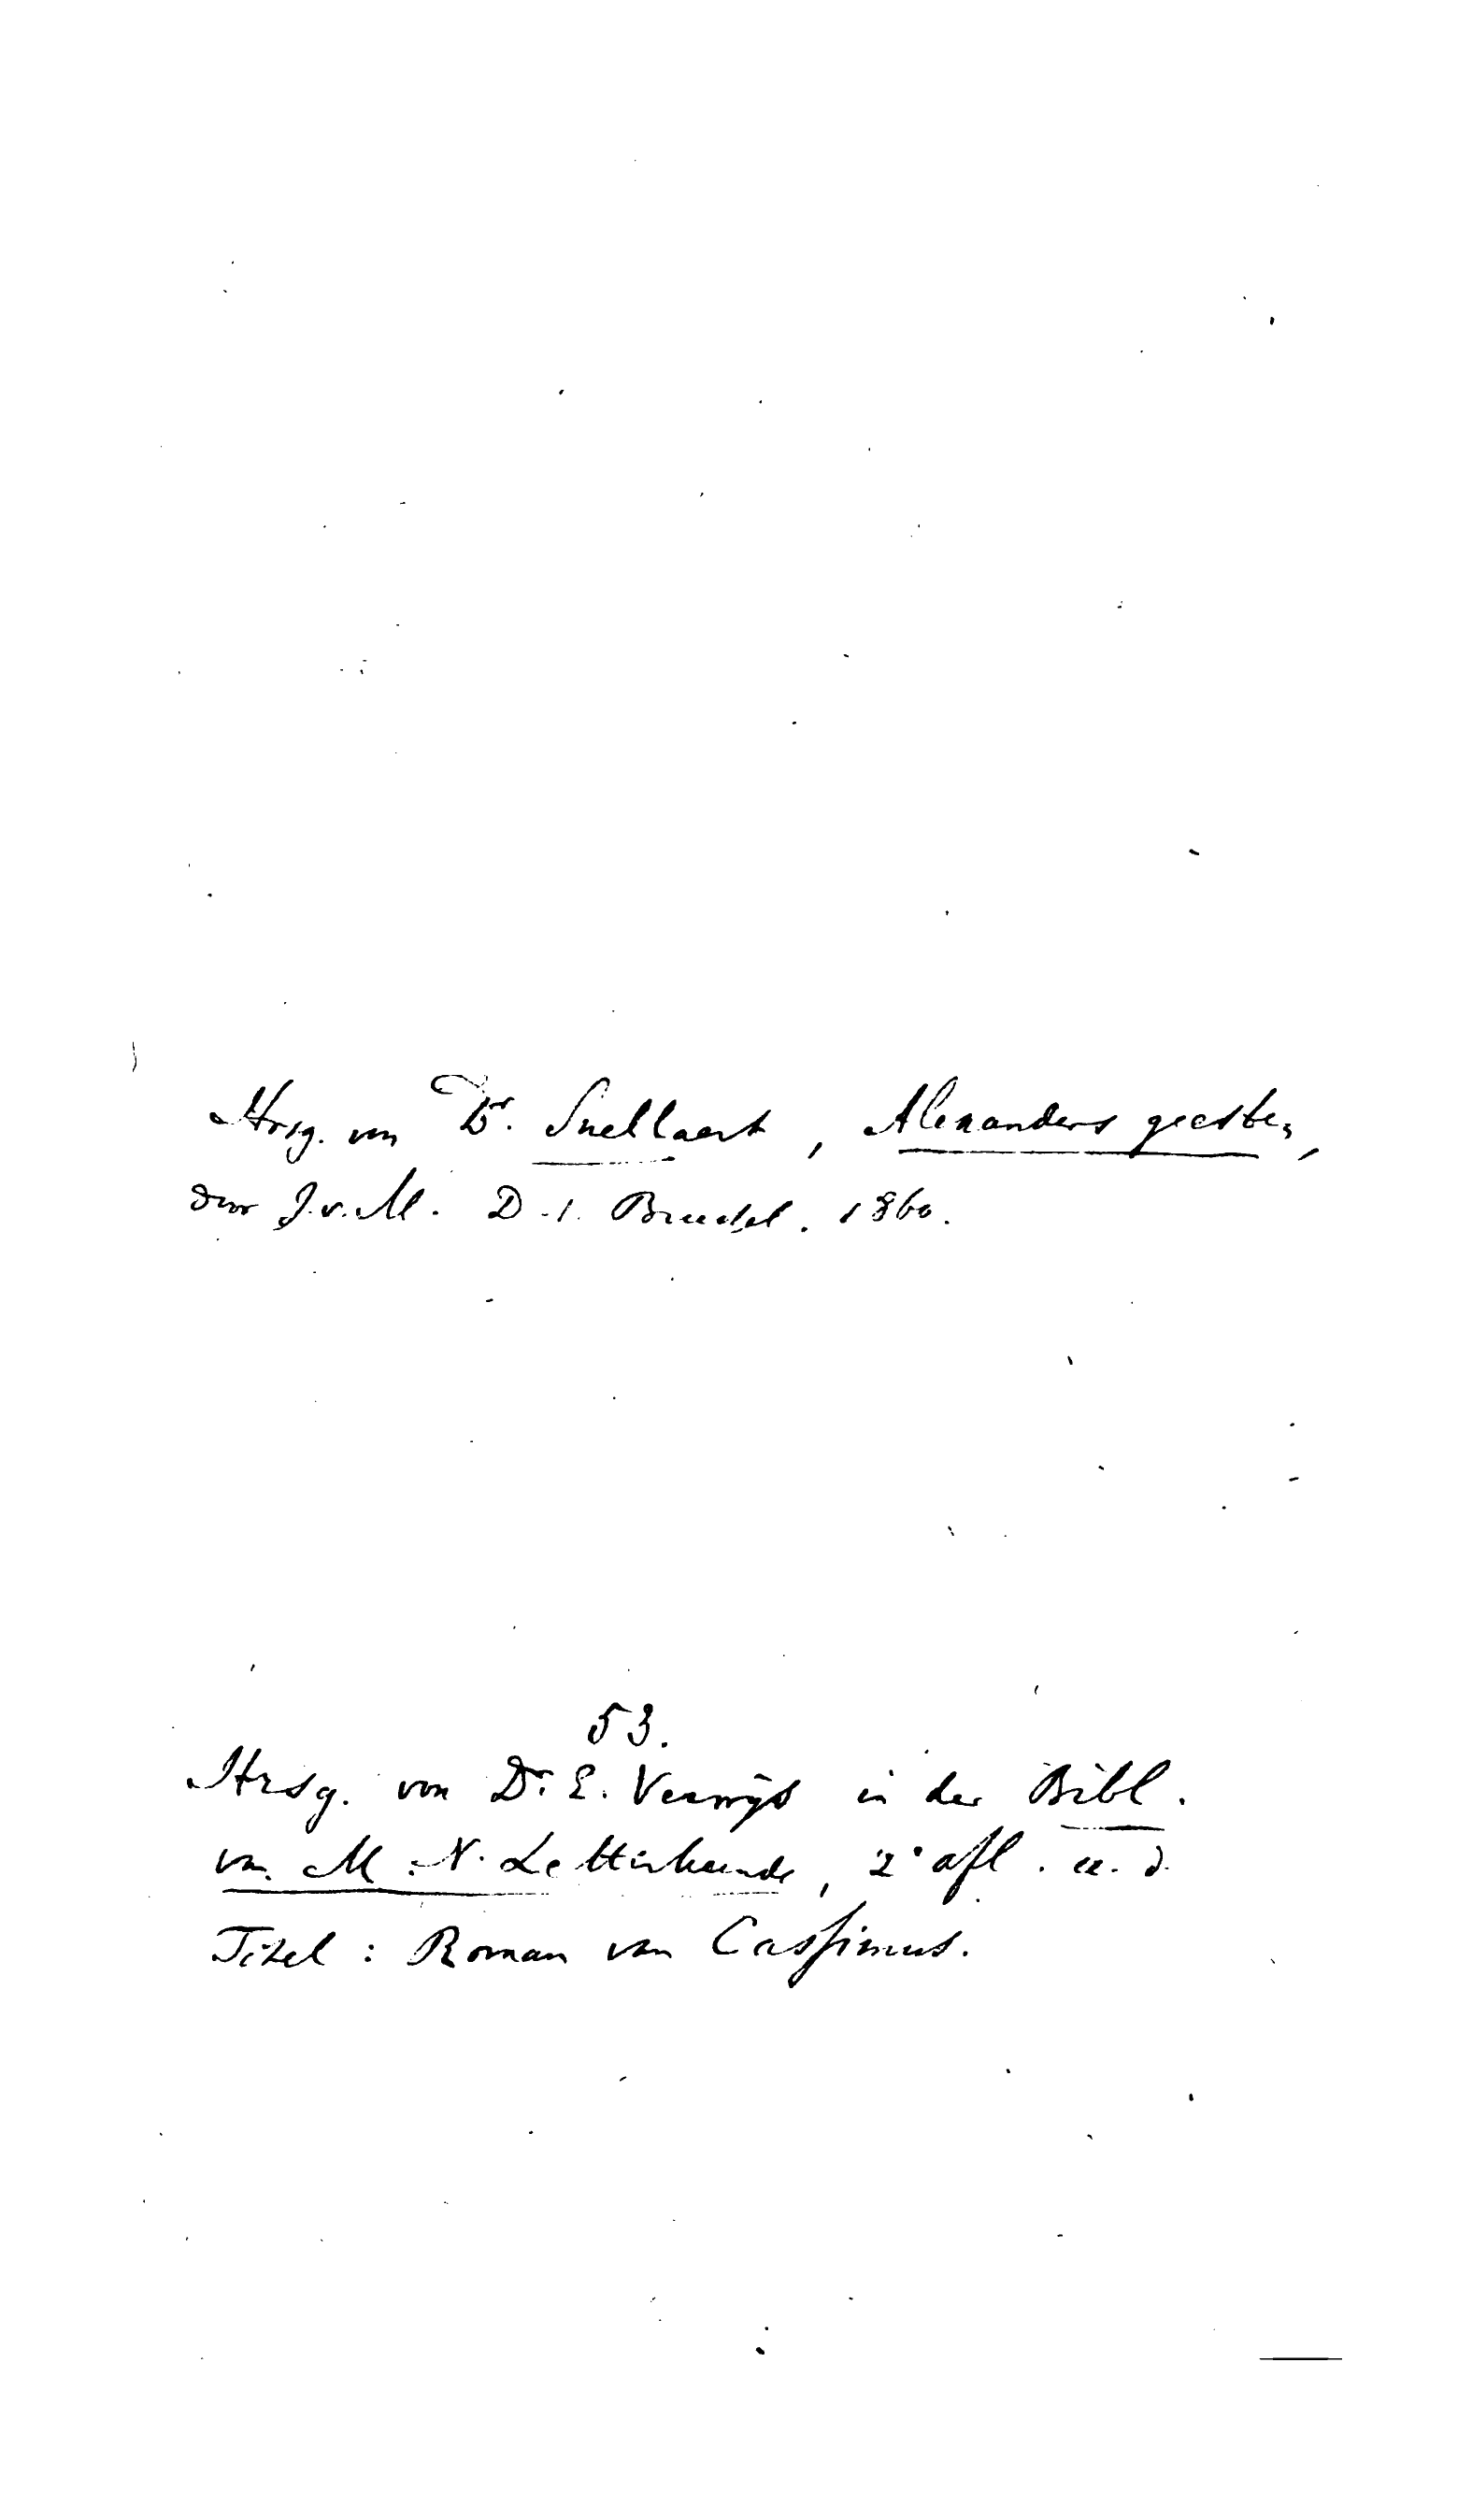 Hrsg. von Dr. Snellaert, Alexanders geesten,
door J. v. M. D. 1. Brussel. 1860.
53.
Hrsg. von Dr. E. Verwijs in der Bibl.
van M. N. Letterkunde, 2e afl. u. d.
Titel: Roman van Cassimus.